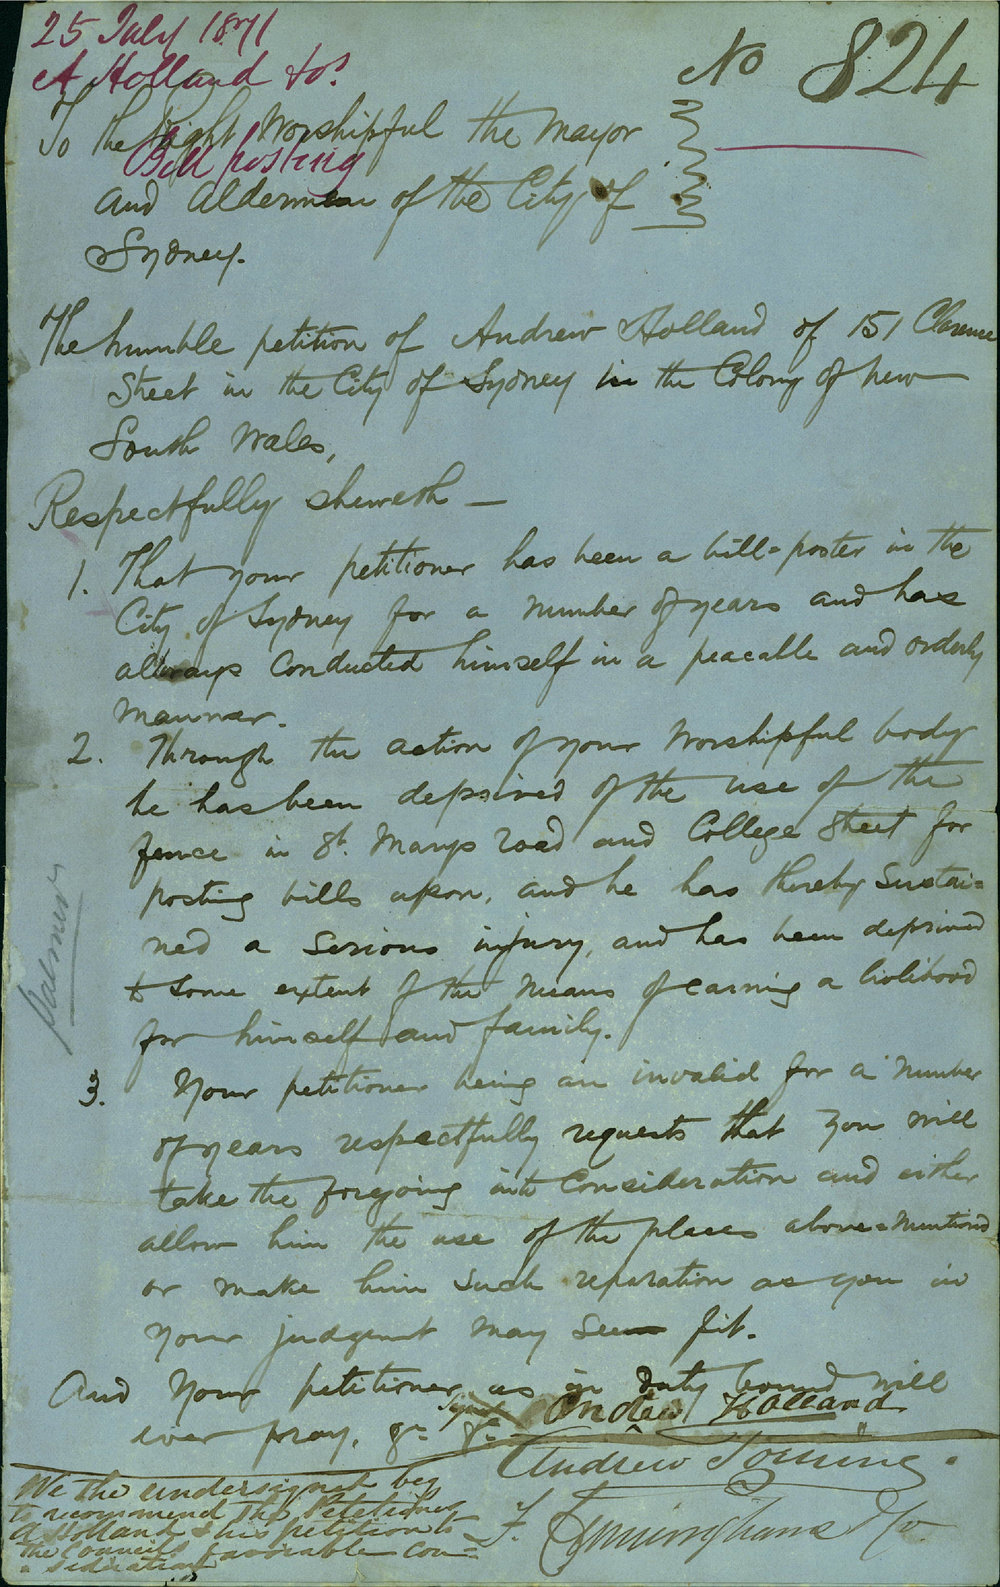 25 July 1871
A Holland &
No 824
To the Right Worshipful the Mayor
Bill posting
and Aldermen of the City of
Sydney.
The humble petition of Andrew Holland of 151 Clarence
Street in the City of Sydney in the Colony of New
South Wales,
Respectfully sheweth —
1. That your petitioner has been a bill=poster in the
City of Sydney for a number of years and has
always conducted himself in a peacable and orderly
manner.
2. Through the action of your Worshipful body
he has been deprived of the use of the
fence in St. Marys road and College Street for
posting bills upon, and he has thereby sustai=
ned a serious injury, and has been deprived
to some extent of the means of earning a livlihood
for himself and family.
3. Your petitioner being an invalid for a number
of years respectfully requests that you will
take the forgoing into consideration and either
allow him the use of the places above=mentioned
or make him such reparation as you in
your judgment may seem fit.
And your petitioner as in duty bound will
ever pray, &c &c
Signed Andrew Holland
Andrew Torning.
We the undersigned beg
to recommend the Petetioner
A Holland & his petition to
the Councils favorable con=
=sideration
F. Cunninghame & Co.